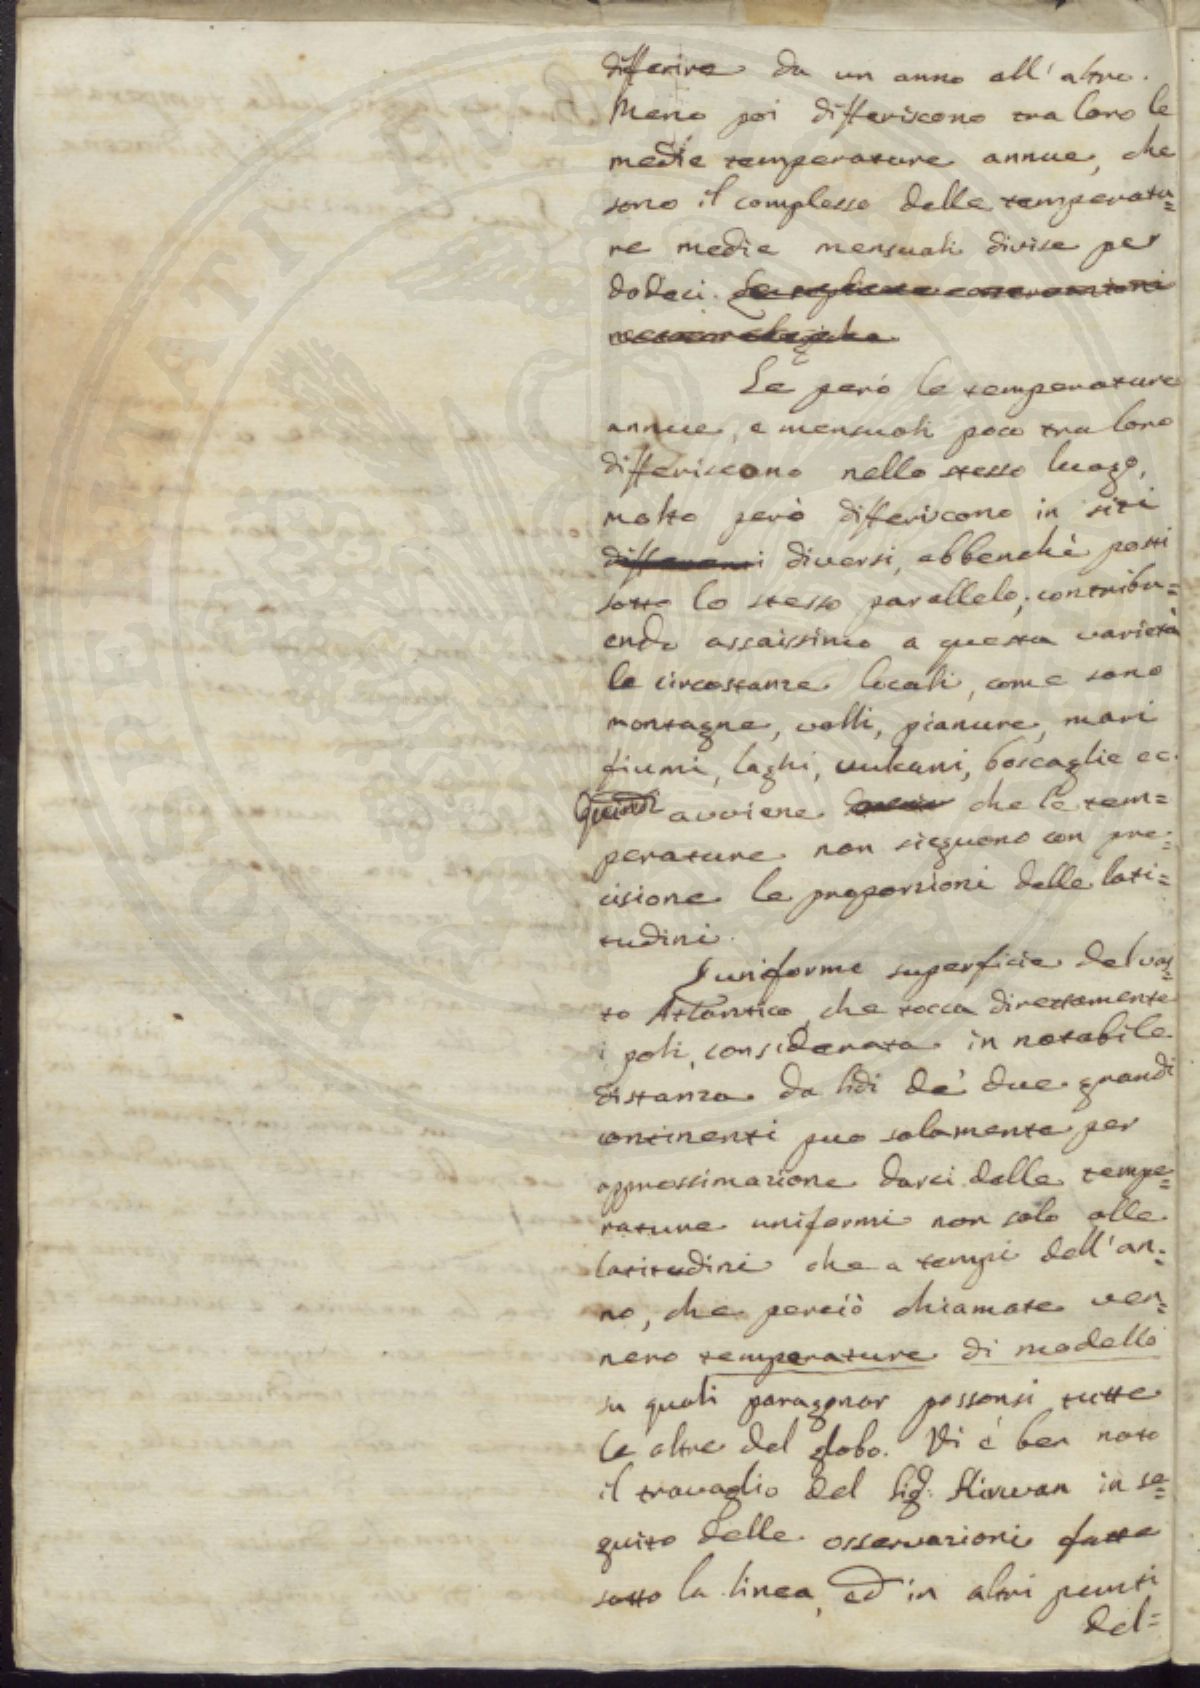 differire da un anno all'altro.
Meno poi differiscono tra loro le
medie temperature annue, che
sono il complesso delle temperatu=
re medie mensuali divise per
dodeci.
Se però le temperature
annue, e mensuali poco tra loro
differiscono nello stesso luogo,
molto però differiscono in siti
differenti diversi, abbenchè posti
sotto lo stesso parallelo; contribu=
endo assaissimo a questa varietà
le circostanze locali, come sono
montagne, valli, pianure, mari
fiumi, laghi, vulcani, boscaglie ec.
Quindi avviene che le tem=
perature non sieguono con pre=
cisione le proporzioni delle lati=
tudini.
L'uniforme superficie del vas=
to Atlantico, che tocca direttamente
i poli, considerata in notabile
distanza da lidi de' due grandi
continenti puo solamente per
approssimazione darci delle tempe=
rature uniformi non solo alle
latitudini che a tempi dell'an=
no, che perciò chiamate ven=
nero temperature di modello
su quali paragonar possonsi tutte
le altre del globo. Vi è ben noto
il travaglio del Sig. Kirwan in se=
guito delle osservazioni fatte
sotto la linea, ed in altri punti
del=